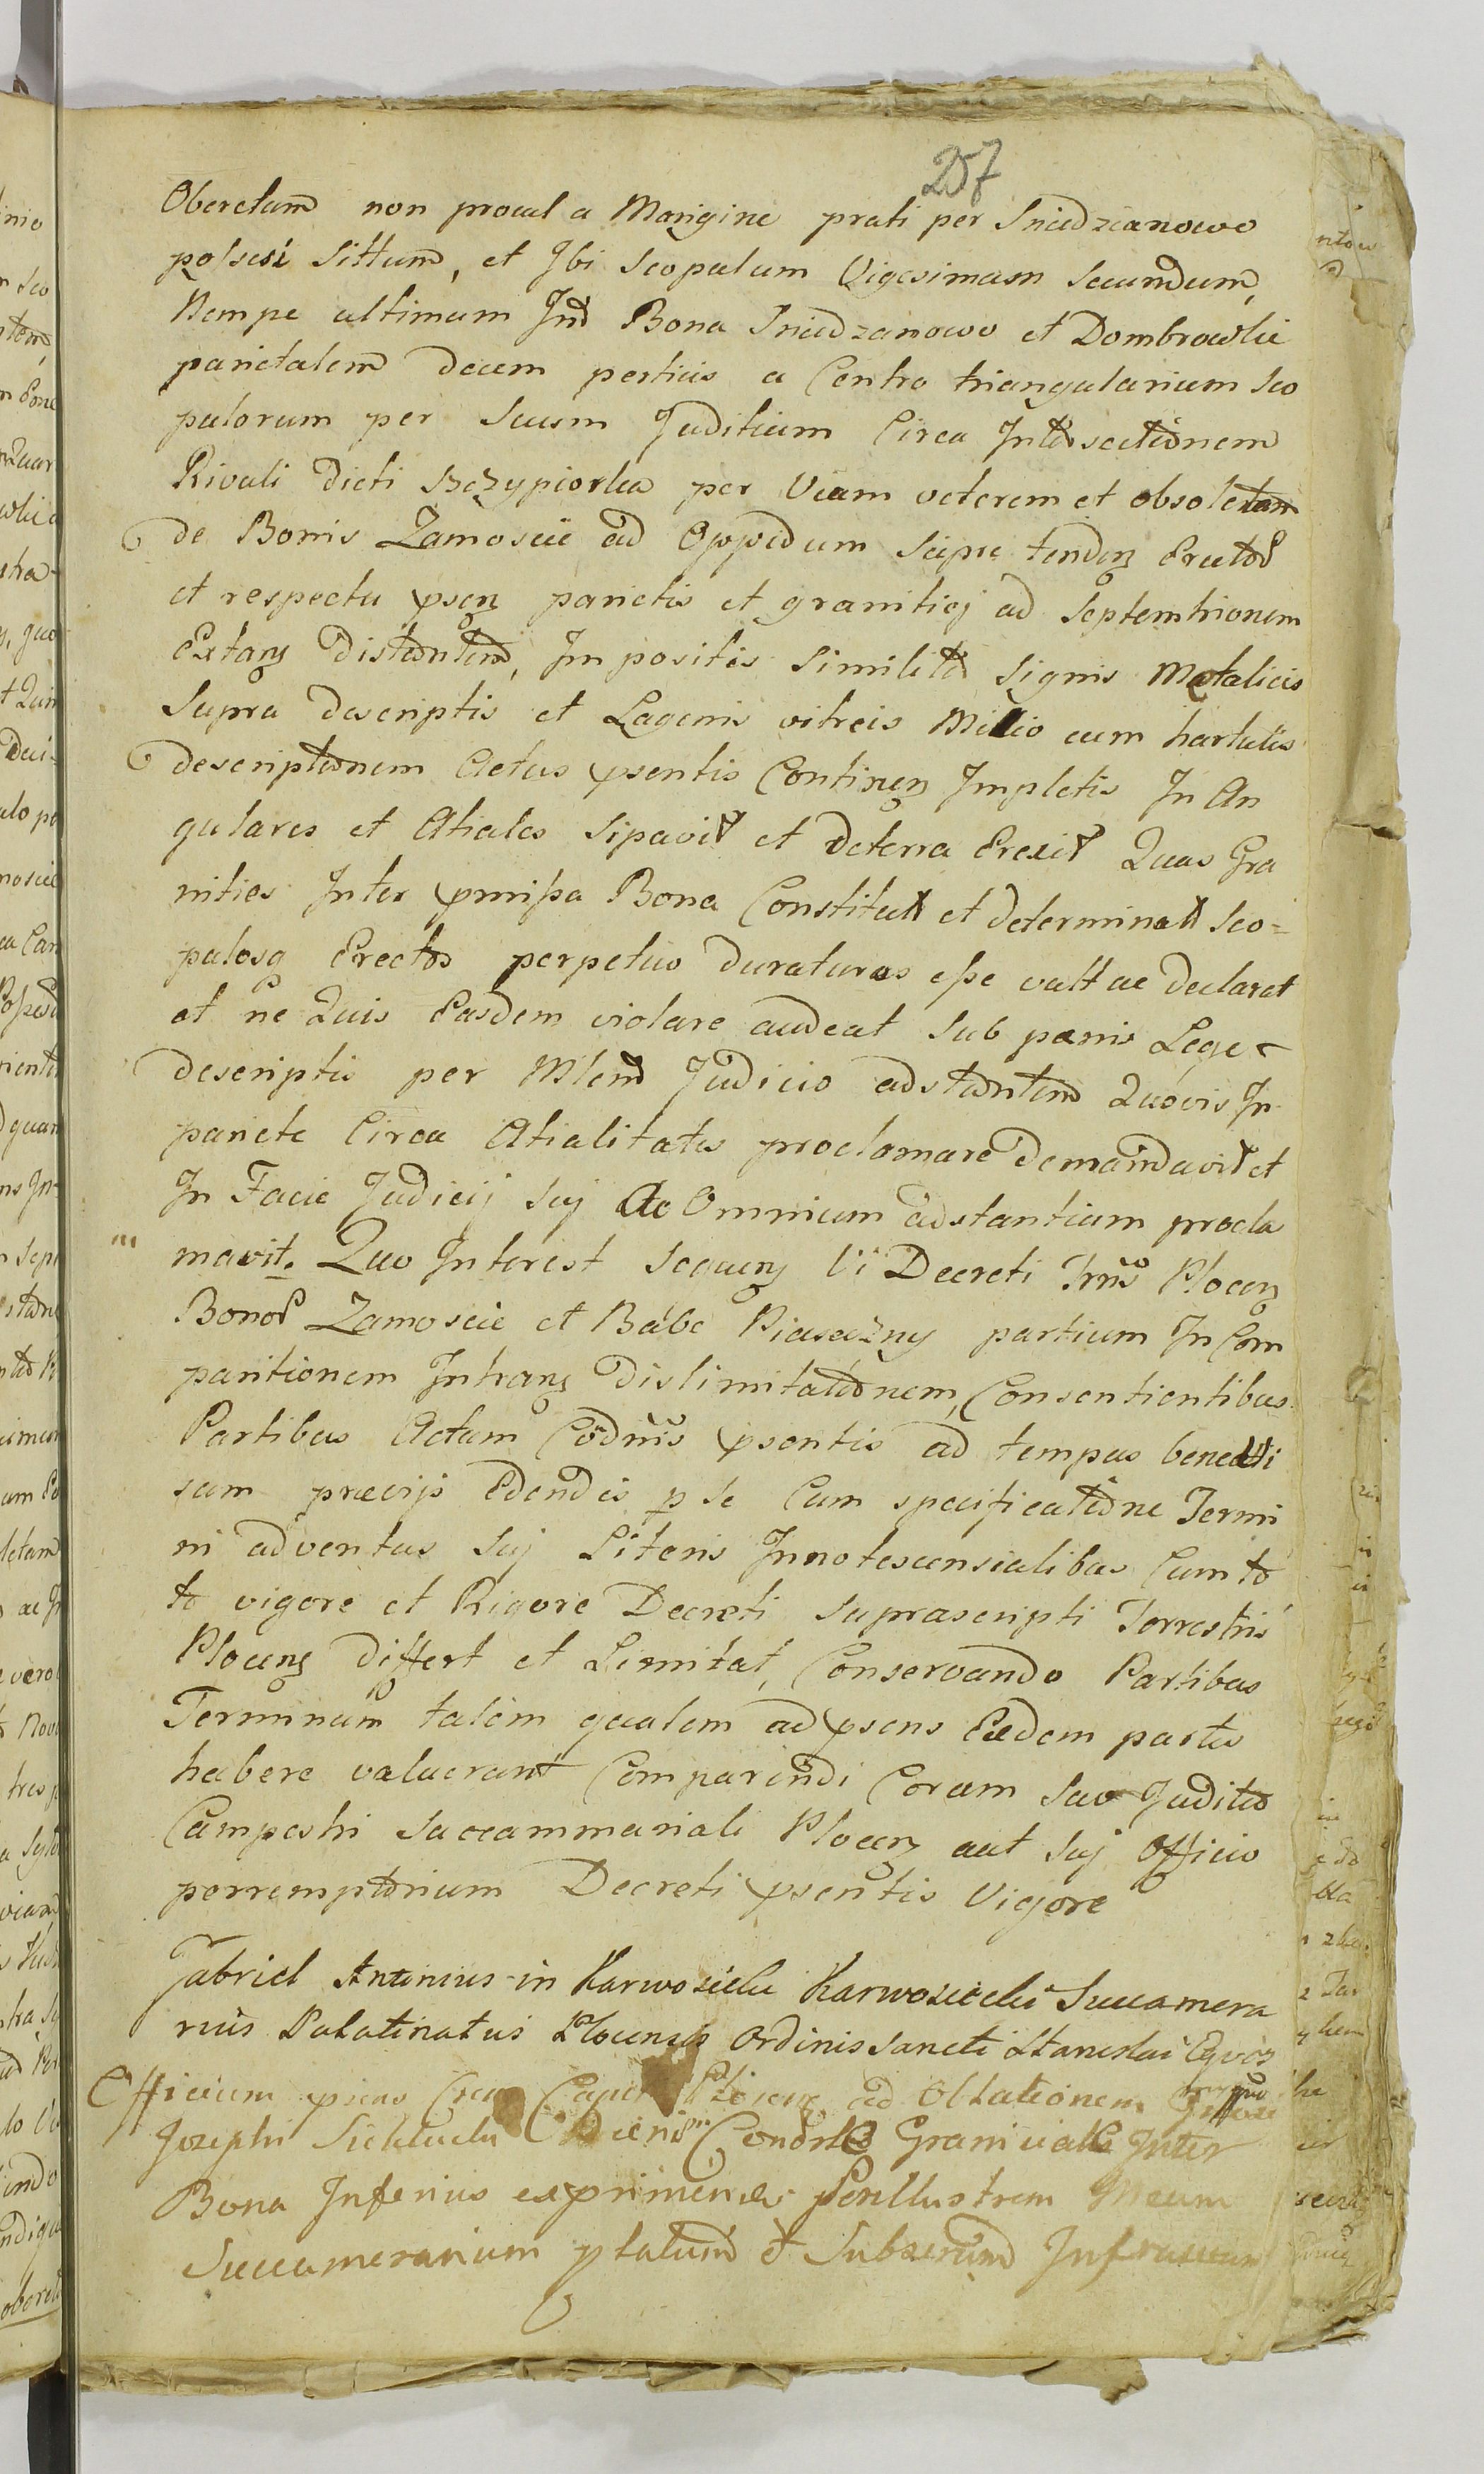 257
Oberetam non procul a Margine prati per Sniedzianowo
possessi Sittum, et Ibi Scopulum Vigesimum Secundum,
Nempe ultimum Int Bona Sniedzanowo et Dombrowskie
parietalem decem perticis a Centro triangularium Sco
pulorum per Suum Juditium Circa Intersectionem
Rivuli dicti Szczypiorka per Viam veterem et obsoletam
de Bonis Zamoscie ad Oppidum Scepie tenden Erectos
et respectu psen parietis et granitiej ad Septemtrionem
Extan Distantem, Impositis Similiter Signis Metalicis
Supra descriptis et Lagenis vitreis Milio cum kartulis
descriptionem Actus psentis Continen Impletis In An
gulares et Atiales Sipavit et deterra Erexit Quas Gra
nities Inter pmissa Bona Constitut et determinat Sco=
pulosq Erectos perpetuo duraturas esse vult ac declarat
et ne Quis Easdem violare audeat sub pænis Lege
descriptis per Mlem Judicio adstantem Quovis In
pariete Circa Atialitates proclamare demandavit et
In Facie Judicij Suj Ac Omnium adstantium procla
mavit. Quo Interest sequen vi Decreti Trris Plocen
Bonor Zamoscie et Babe Piaseczny partium In Com
paritionem Intran dislimitationem, Consentientibus
Partibus Actum Codnis psentis ad tempus benevi
sum prævijs Edendis p se Cum specificatione Termi
ni adventus Suj Literis Innotescensialibus Cum to
to vigore et Rigore Decreti suprascripti Terrestris
Plocen differt et Limitat, Conservando Partibus
Terminum talem qualem ad psens Eædem partes
habere valuerant Comparendi Coram suo Juditio
Campestri Succammeriali Plocen aut Suj Officio
perremptorium Decreti psentis Vigore
Gabriel Antonius in Karwosieki Karwosiecki Succamera
rius Palatinatus Plocensis Ordinis Sancti Stanislai Eques
Officium psens Capit Plocen ad Oblationem
Josephi Condrle Graniciale Inter
Bona Inferius exprimenda Perillustrem Meum
Succamerarium platum et Subscrum